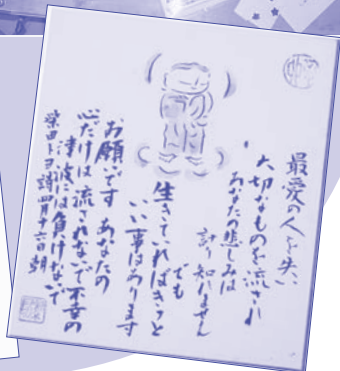 最愛の人を失い
大切なものを流され
あなたの悲しみは
計り知れません
でも
生きていればきっと
いい事はあります
お願いです あなたの
心だけは流されないで不幸の
津波には負けないで
柴田トヨ詩 四月六日朝